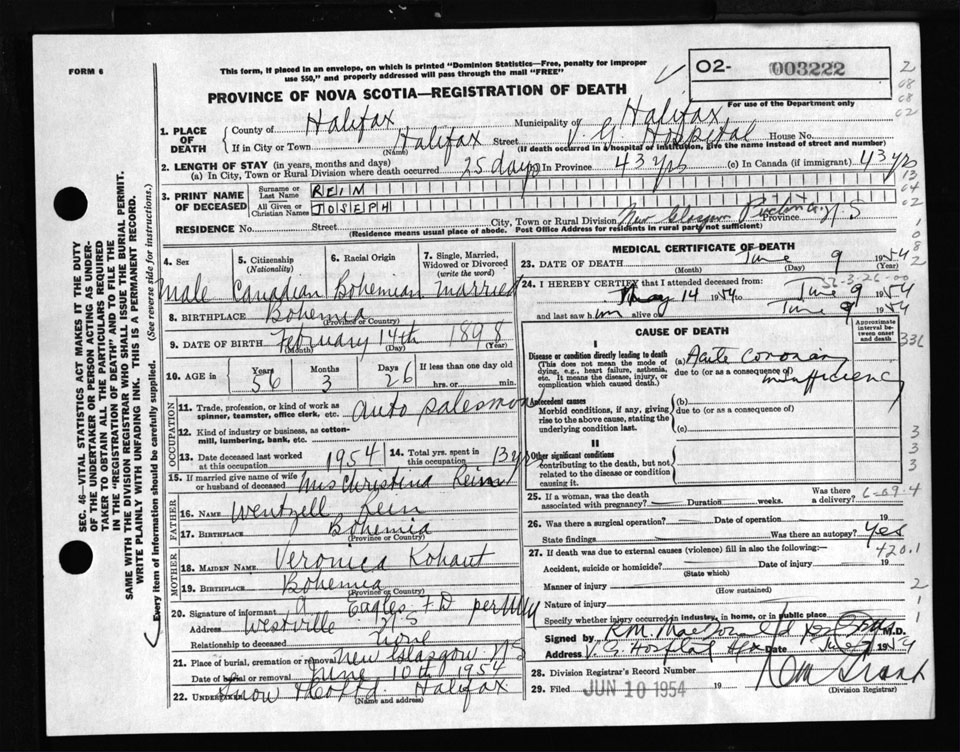 FORM 6
This form, if placed in an envelope, on which is printed "Dominion Statistics—Free, penalty for improper
use $50," and properly addressed will pass through the mail "FREE"
02- 003222
For use of the Department only
PROVINCE OF NOVA SCOTIA—REGISTRATION OF DEATH
1. PLACE OF DEATH
County of Halifax Municipality of Halifax
If in City or Town Halifax Street V. G. Hospital House No.
(Name) (If death occurred in a hospital of institution, give the name instead of street and number)
2. LENGTH OF STAY (in years, months and days)
(a) In City, Town or Rural Division where death occurred 25 days In Province 43 yrs (c) In Canada (if immigrant) 43 yrs
3. PRINT NAME OF DECEASED
Surname or Last Name REIN
All Given or Christian Names JOSEPH
RESIDENCE No. Street City, Town or Rural Division New Glasgow Pictou Co Province N.S
(Residence means usual place of abode. Post Office Address for residents in rural party not sufficient)
4. Sex
Male
5. Citizenship (Nationality)
Canadian
6. Racial Origin
Bohemian
7. Single, Married, Widowed or Divorced (write the word)
married
8. BIRTHPLACE Bohemia
(Province or Country)
9. DATE OF BIRTH February 14th 1898
(Month) (Day) (Year)
10. AGE in Years 56 Months 3 Days 26 If less than one day old
hrs. or min.
OCCUPATION
11. Trade, profession, or kind of work as spinner, teamster, office clerk, etc. auto salesman
12. Kind of industry or business, as cotton-mill, lumbering, bank, etc.
13. Date deceased last worked at this occupation 1954
14. Total yrs. spent in this occupation 13 yrs
15. If married give name of wife or husband of deceased Mrs Christina Rein
FATHER
16. NAME Wentzell Rein
17. BIRTHPLACE Bohemia
(Province or Country)
MOTHER
18. MAIDEN NAME Veronica Kohaut
19. BIRTHPLACE Bohemia
(Province or Country)
20. Signature of informant A Eagles F D per
Address Westville N S
Relationship to deceased none
21. Place of burial, cremation or removal New Glasgow N S
Date of burial or removal June 10th 1954
22. UNDERTAKER Snow & Co Ltd. Halifax
MEDICAL CERTIFICATE OF DEATH
23. DATE OF DEATH June 9 1954
(Month) (Day) (Year)
56-3-26-00
24. I HEREBY CERTIFY that I attended deceased from:
May 14 1954 to June 9 1954
and last saw him alive on June 9 1954
CAUSE OF DEATH
Approximate interval between onset and death
I
Disease or condition directly leading to death
(This does not mean the mode of dying, e.g., heart failure, asthenia, etc. It means the disease, injury, or complication which caused death.)
(a) Acute coronary
due to (or as a consequence of)
insufficiency
Antecedent causes
Morbid conditions, if any, giving rise to the above cause, stating the underlying condition last.
(b)
due to (or as a consequence of)
(c)
II
Other significant conditions
contributing to the death, but not related to the disease or condition causing it.
25. If a woman, was the death associated with pregnancy? Duration weeks. Was there a delivery?
26. Was there a surgical operation? Date of operation 19
State findings Was there an autopsy? Yes
27. If death was due to external causes (violence) fill in also the following:— 420.1
Accident, suicide or homicide? Date of injury 19
(State which)
Manner of injury
(How sustained)
Nature of injury
Specify whether injury occurred in industry, in home, or in public place
Signed by M.D.
Address V. G. Hospital Hfx Date June 1954
28. Division Registrar's Record Number
29. Filed JUN 10 1954 19
(Division Registrar)
SEC. 46—VITAL STATISTICS ACT MAKES IT THE DUTY
OF THE UNDERTAKER OR PERSON ACTING AS UNDER-
TAKER TO OBTAIN ALL THE PARTICULARS REQUIRED
IN THE "REGISTRATION OF DEATH" AND TO FILE THE
SAME WITH THE DIVISION REGISTRAR WHO SHALL ISSUE THE BURIAL PERMIT.
WRITE PLAINLY WITH UNFADING INK. THIS IS A PERMANENT RECORD.
Every item of information should be carefully supplied. (See reverse side for instructions.)